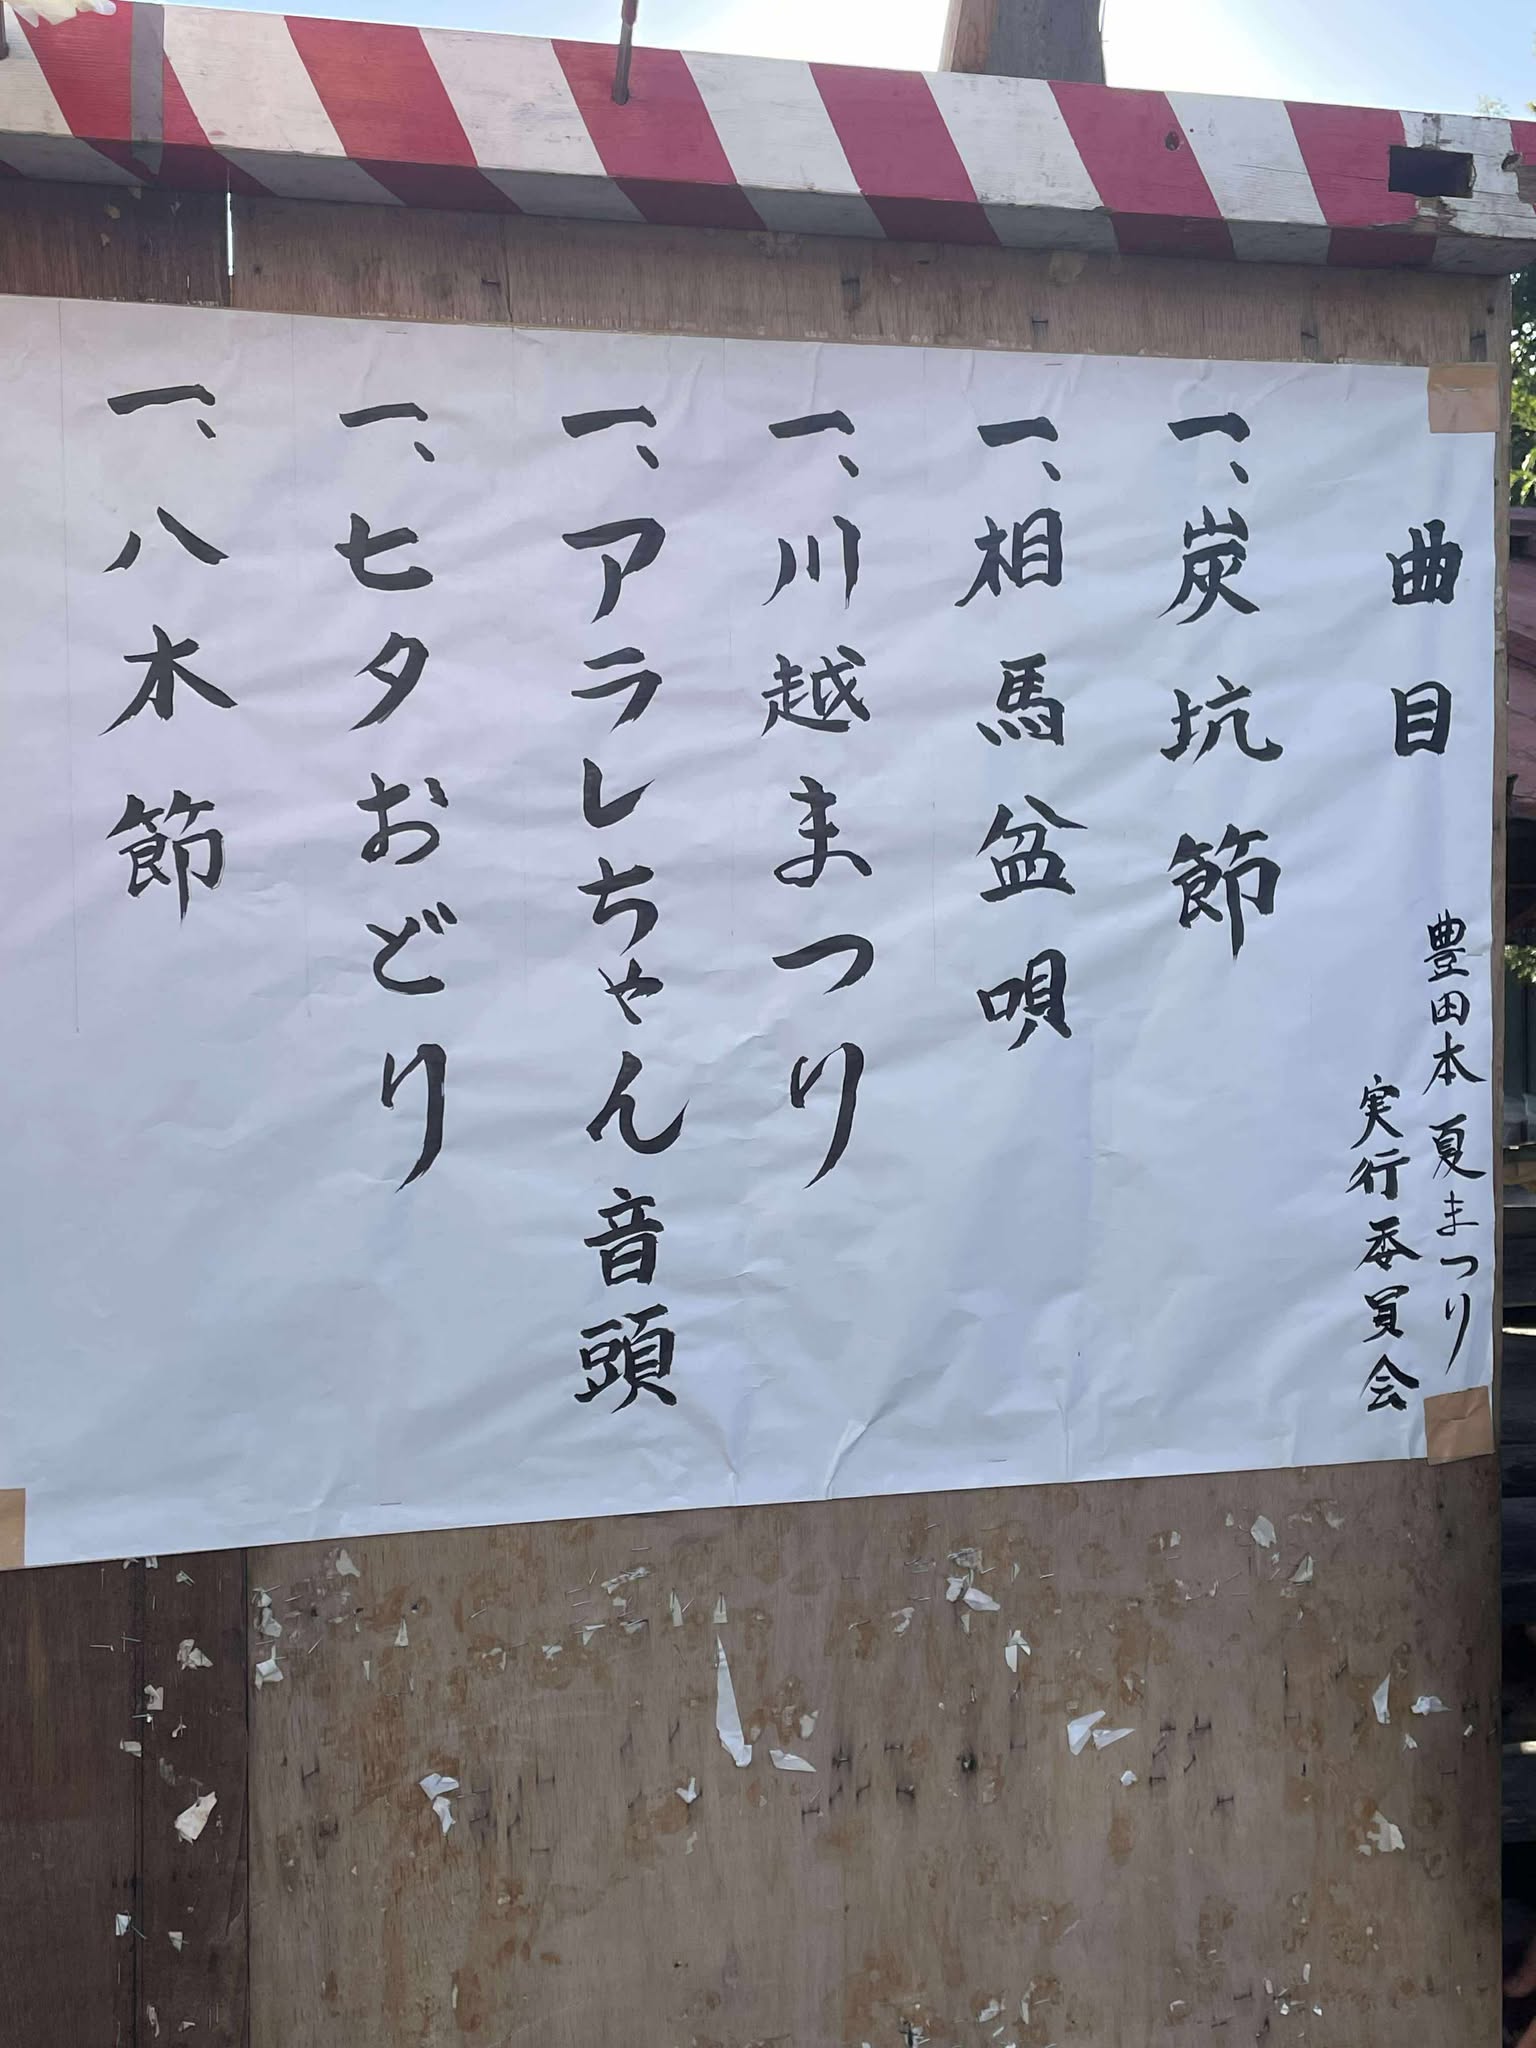 曲目
豊田本夏まつり
実行委員会
一、炭坑節
一、相馬盆唄
一、川越まつり
一、アラレちゃん音頭
一、七夕おどり
一、八木節